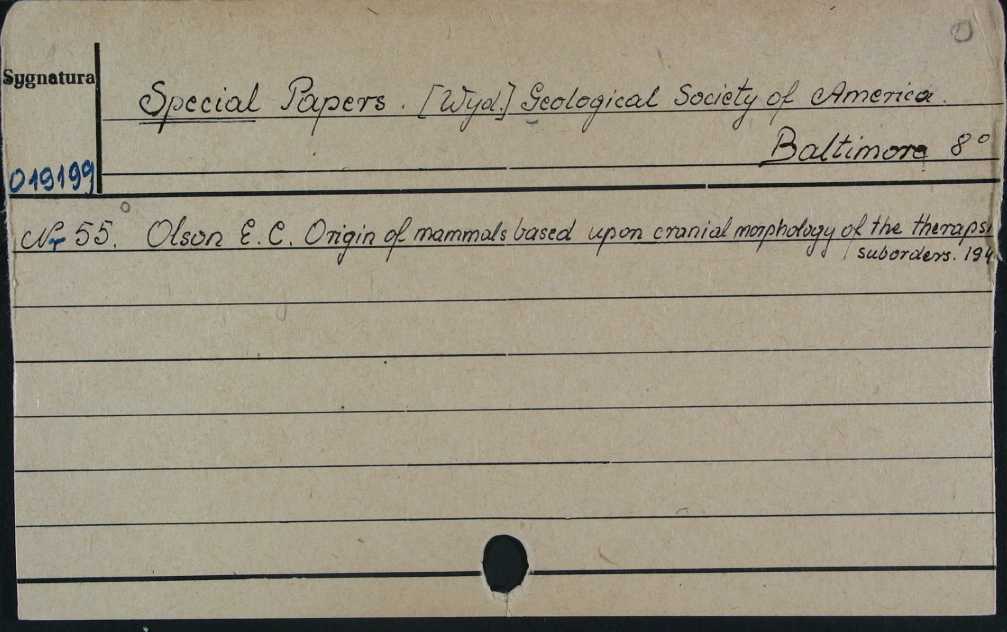 Sygnatura
Special Papers. [Wyd.] Geological Society of America.
Baltimore 8°
019199
Nr 55. Olson E. C. Origin of mammals based upon cranial morphology of the therapsi
suborders. 194